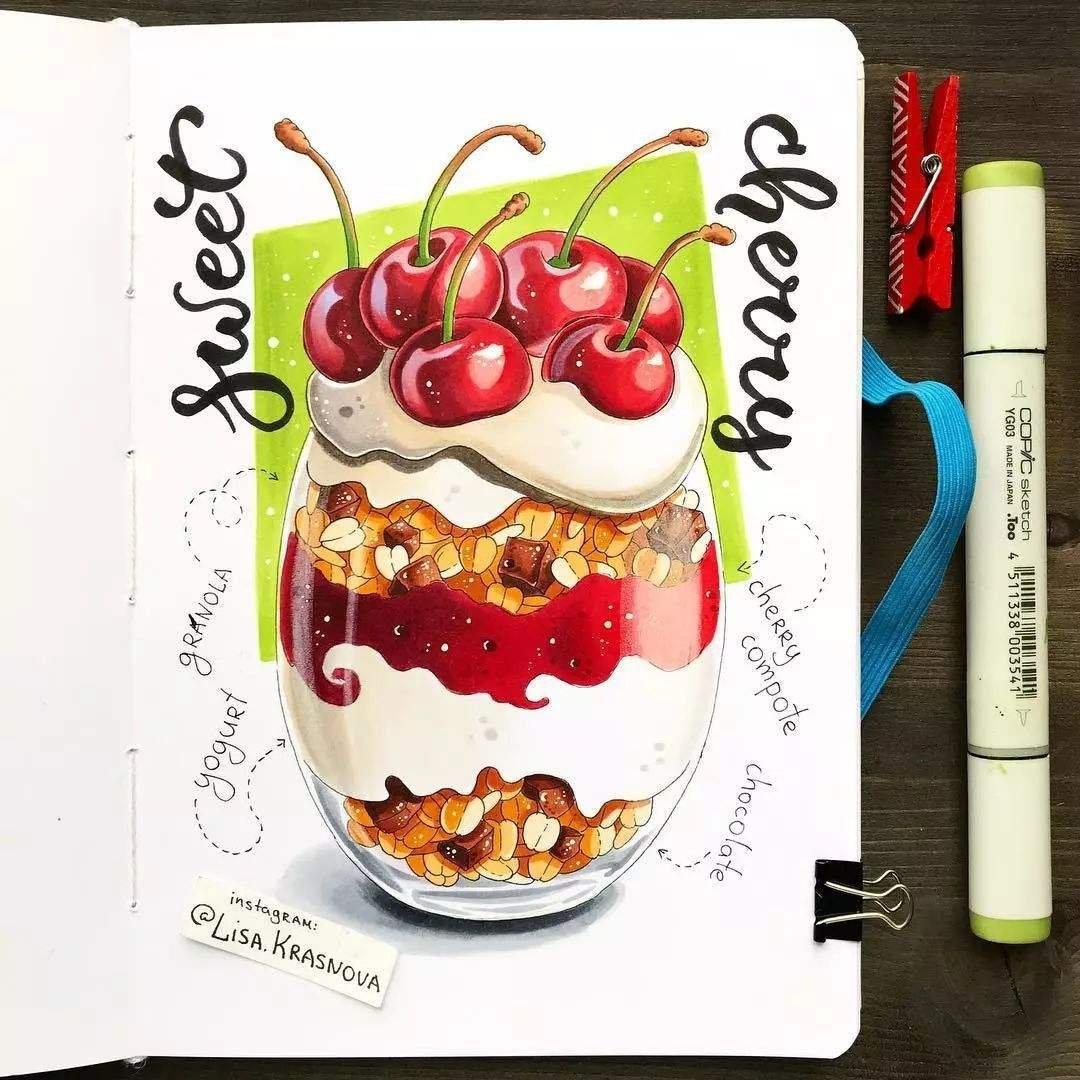 sweet
cherry
GRANOLA
yogurt
cherry
compote
chocolate
instagram:
@LISA.KRASNOVA
COPIC sketch
YG03 MADE IN JAPAN .Too
4 511338 003541